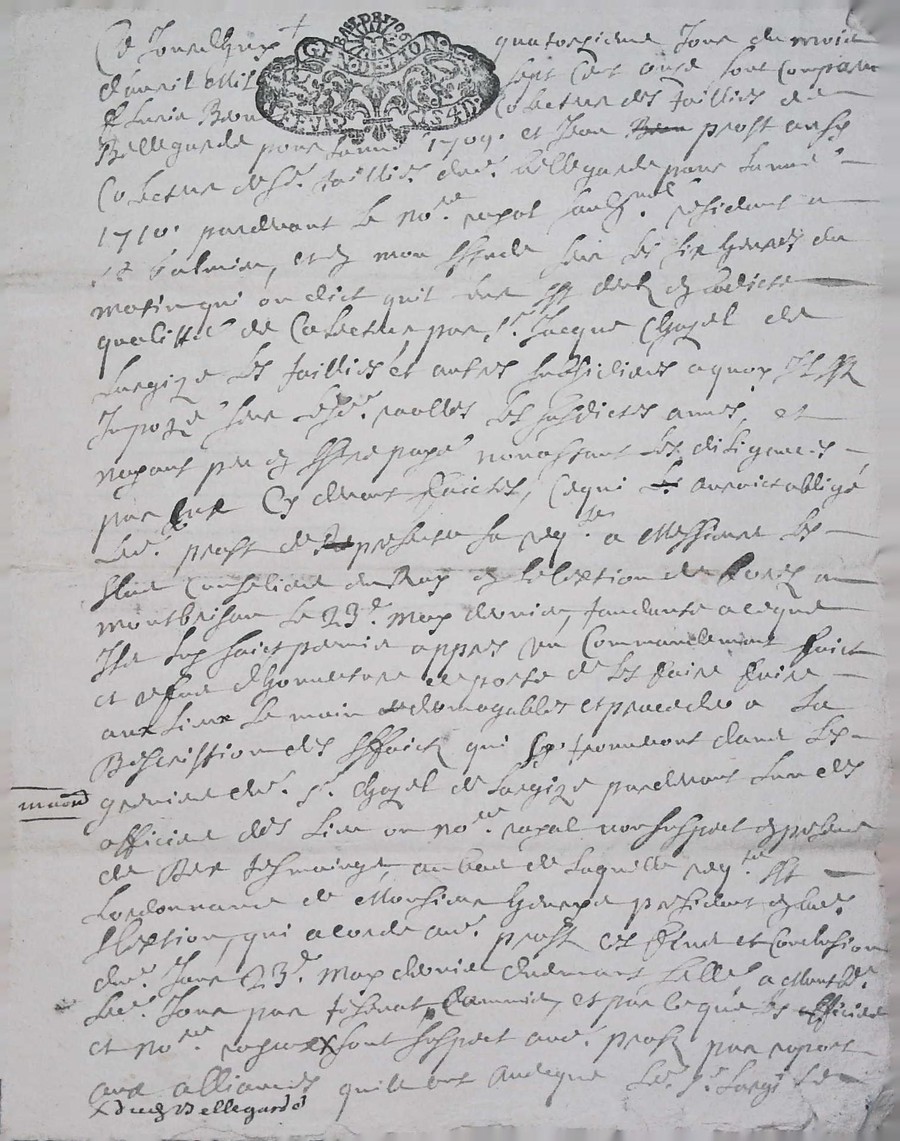 Ce Jourdhuy + quatorzieme Jour du mois
d'avril mil sept Cent onze sont Comparu
GEN DE LION
S 4 D
Collecteur des tailles de
Bellegarde pour lannee 1709. et Jean prost aussy
Collecteur desd. tailles dud. Bellegarde pour lannee
1710. pardevant le no.re royal résidant a
St Galmier, et en mon estude sur les six heures du
matin qui on dict quil leur est deub en ladicte
qualitté de Collecteur, par s.r Jacque Chazel de
Largize les tailles et autres subsides a quoy Il est
Impozé sur lesd. rolles les susdictes années, et
nayant peu en estre payé nonostant les diligences
par eux Cy devant faictes, Ce qui auroict obligé
led. prost de presenter sa req.te a Messieurs les
Esleu Conseiller du Roy en l'eslection de forez a
montbrison le 23.e may dernier, tandante a ceque
Il luy soict permis appres un Commandement faict
et refus d'houverture de porte de les faire faire
aux lieux le moin domagables et proceder a la
Description des effaictz qui se trouveront dans les
greniers dud. s.r Chazel de Largize pardevant lun des
officiers des lieu ou no.re royal non suspect en presence
de deux tesmoings, au bas de laquelle req.te est
Lordonnance de Monsieur president en lad.
Eslection, qui acorde aud. prost ses fins et Conclusion
dud. Jour 23.e may dernier duemant sellé a Montb.on
led. Jour par et par ce que les officiers
et no.re royaux x sont suspect aud. prost par raport
aux alliances quils ont avecque led. s.r Largize
x dud. Bellegarde